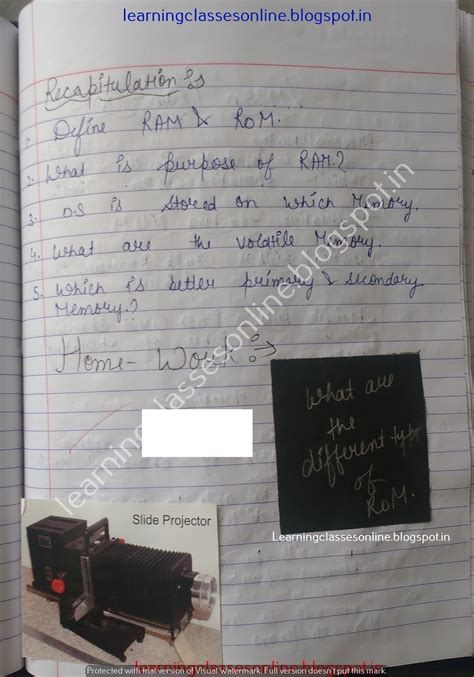 learningclassesonline.blogspot.in
Recapitulation :-
1. Define RAM & ROM.
2. What is purpose of RAM?
3. OS is stored on which Memory.
4. What are the volatile Memory.
5. which is better primary & secondary
Memory?
Home-Work :->
what are
the
different type
of
ROM.
learningclassesonline.blogspot.in
Learningclassesonline.blogspot.in
Slide Projector
learningclassesonline.blogspot.in
Protected with trial version of Visual Watermark. Full version doesn't put this mark.